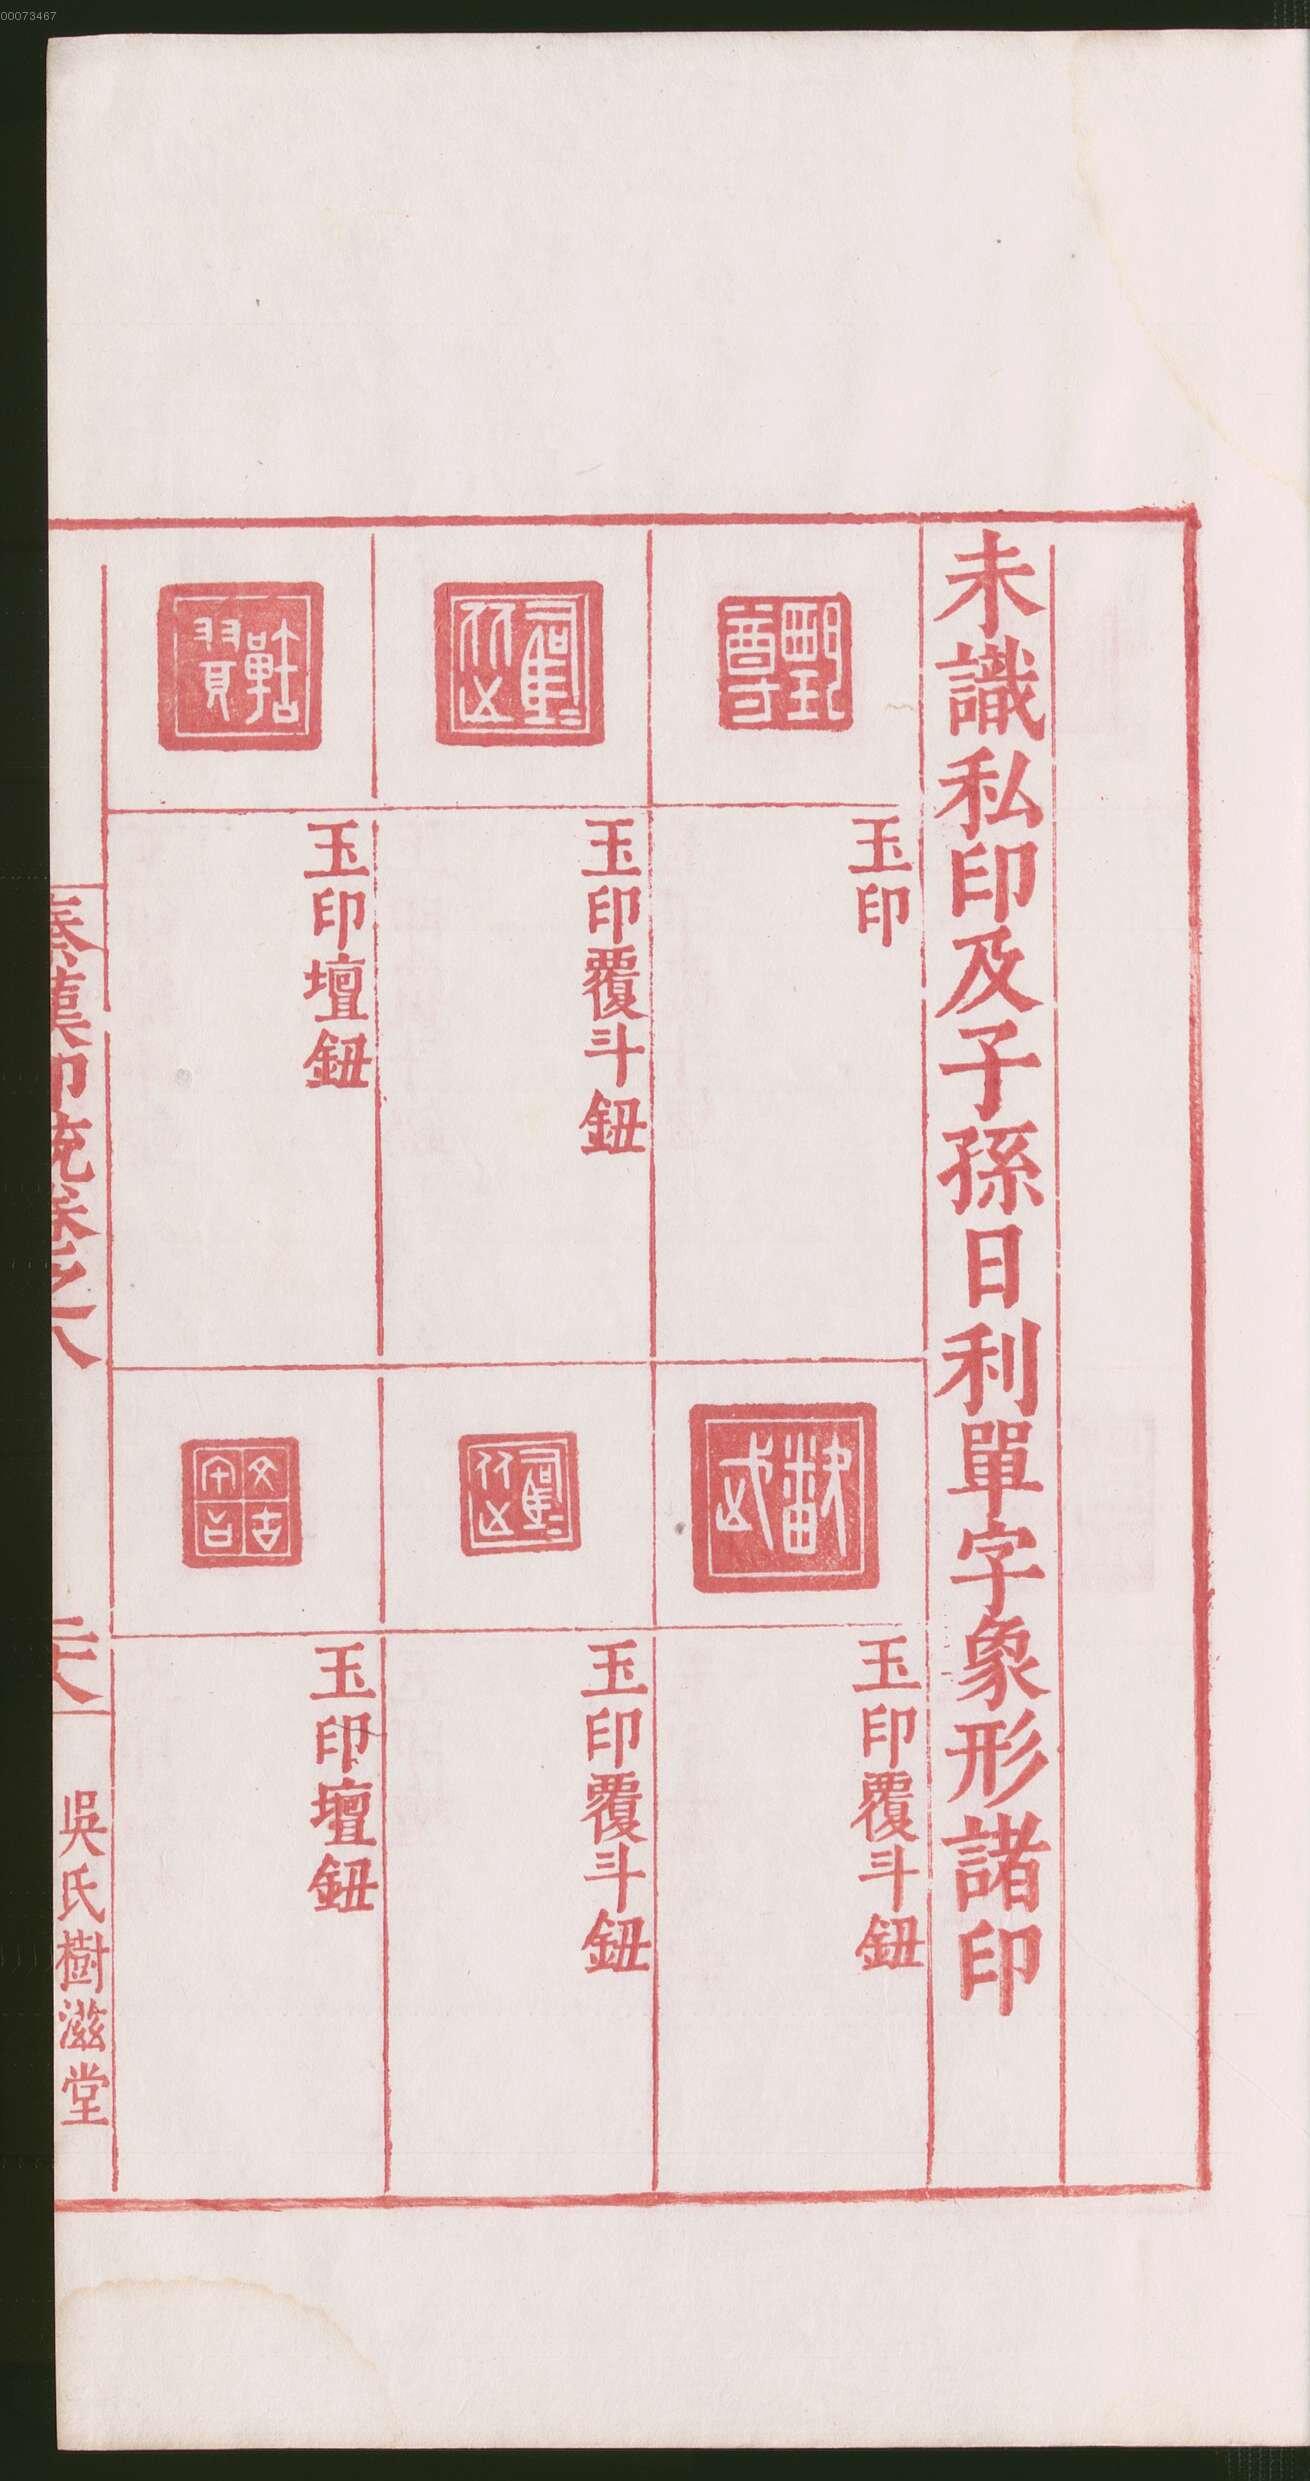 00073467
未識私印及子孫日利單字象形諸印
玉印
玉印覆斗鈕
玉印覆斗鈕
玉印覆斗鈕
玉印壇鈕
玉印壇鈕
秦漢印統卷之八
二十八
吳氏樹滋堂